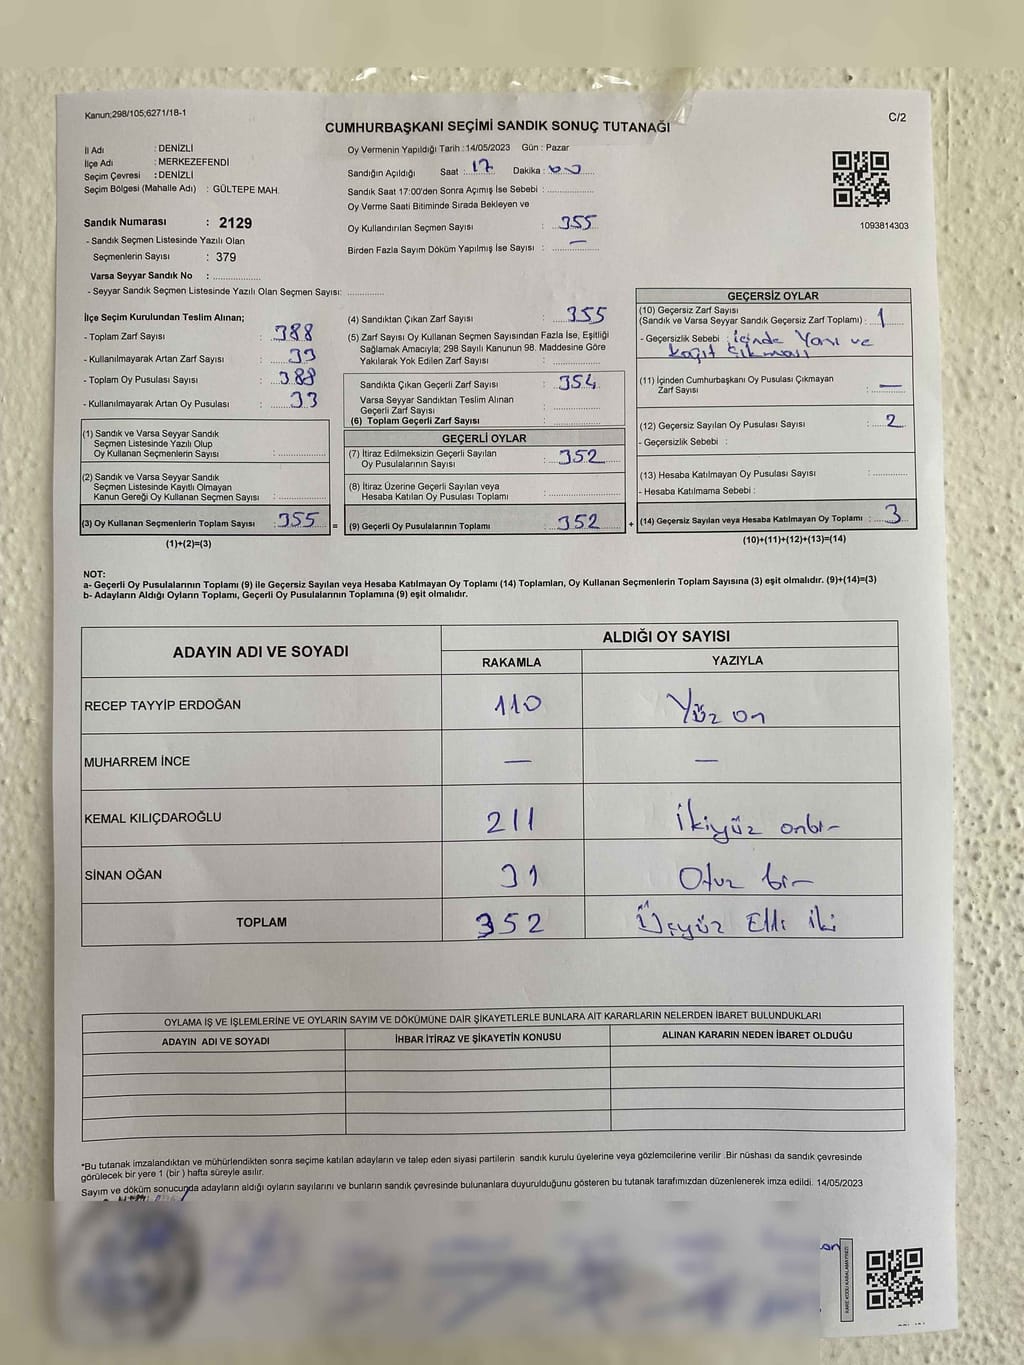 Kanun;298/105;6271/18-1
C/2
CUMHURBAŞKANI SEÇİMİ SANDIK SONUÇ TUTANAĞI
İl Adı : DENİZLİ
İlçe Adı : MERKEZEFENDİ
Seçim Çevresi : DENİZLİ
Seçim Bölgesi (Mahalle Adı) : GÜLTEPE MAH.
Sandık Numarası : 2129
- Sandık Seçmen Listesinde Yazılı Olan
Seçmenlerin Sayısı : 379
Varsa Seyyar Sandık No : ..............
- Seyyar Sandık Seçmen Listesinde Yazılı Olan Seçmen Sayısı: ............
Oy Vermenin Yapıldığı Tarih : 14/05/2023 Gün : Pazar
Sandığın Açıldığı Saat : 17 Dakika : 00
Sandık Saat 17:00'den Sonra Açımış İse Sebebi : ..............
Oy Verme Saati Bitiminde Sırada Bekleyen ve
Oy Kullandırılan Seçmen Sayısı : 355
Birden Fazla Sayım Döküm Yapılmış İse Sayısı : —
1093814303
İlçe Seçim Kurulundan Teslim Alınan;
- Toplam Zarf Sayısı : 388
- Kullanılmayarak Artan Zarf Sayısı : 33
- Toplam Oy Pusulası Sayısı : 388
- Kullanılmayarak Artan Oy Pusulası : 33
(1) Sandık ve Varsa Seyyar Sandık
Seçmen Listesinde Yazılı Olup
Oy Kullanan Seçmenlerin Sayısı : ..............
(2) Sandık ve Varsa Seyyar Sandık
Seçmen Listesinde Kayıtlı Olmayan
Kanun Gereği Oy Kullanan Seçmen Sayısı : ..............
(3) Oy Kullanan Seçmenlerin Toplam Sayısı : 355 =
(1)+(2)=(3)
(4) Sandıktan Çıkan Zarf Sayısı : 355
(5) Zarf Sayısı Oy Kullanan Seçmen Sayısından Fazla İse, Eşitliği
Sağlamak Amacıyla; 298 Sayılı Kanunun 98. Maddesine Göre
Yakılarak Yok Edilen Zarf Sayısı : ..............
Sandıkta Çıkan Geçerli Zarf Sayısı : 354
Varsa Seyyar Sandıktan Teslim Alınan
Geçerli Zarf Sayısı : ..............
(6) Toplam Geçerli Zarf Sayısı : ..............
GEÇERLİ OYLAR
(7) İtiraz Edilmeksizin Geçerli Sayılan
Oy Pusulalarının Sayısı : 352
(8) İtiraz Üzerine Geçerli Sayılan veya
Hesaba Katılan Oy Pusulası Toplamı : ..............
(9) Geçerli Oy Pusulalarının Toplamı : 352 +
GEÇERSİZ OYLAR
(10) Geçersiz Zarf Sayısı
(Sandık ve Varsa Seyyar Sandık Geçersiz Zarf Toplamı) : 1
- Geçersizlik Sebebi : içinde Yazı ve
kağıt çıkması
(11) İçinden Cumhurbaşkanı Oy Pusulası Çıkmayan
Zarf Sayısı : —
(12) Geçersiz Sayılan Oy Pusulası Sayısı : 2
- Geçersizlik Sebebi :
(13) Hesaba Katılmayan Oy Pusulası Sayısı : ..............
- Hesaba Katılmama Sebebi :
(14) Geçersiz Sayılan veya Hesaba Katılmayan Oy Toplamı : 3
(10)+(11)+(12)+(13)=(14)
NOT:
a- Geçerli Oy Pusulalarının Toplamı (9) ile Geçersiz Sayılan veya Hesaba Katılmayan Oy Toplamı (14) Toplamları, Oy Kullanan Seçmenlerin Toplam Sayısına (3) eşit olmalıdır. (9)+(14)=(3)
b- Adayların Aldığı Oyların Toplamı, Geçerli Oy Pusulalarının Toplamına (9) eşit olmalıdır.
ADAYIN ADI VE SOYADI
ALDIĞI OY SAYISI
RAKAMLA YAZIYLA
RECEP TAYYİP ERDOĞAN 110 Yüz on
MUHARREM İNCE — —
KEMAL KILIÇDAROĞLU 211 İkiyüz onbir
SİNAN OĞAN 31 Otuz bir
TOPLAM 352 Üçyüz Elli iki
OYLAMA İŞ VE İŞLEMLERİNE VE OYLARIN SAYIM VE DÖKÜMÜNE DAİR ŞİKAYETLERLE BUNLARA AİT KARARLARIN NELERDEN İBARET BULUNDUKLARI
ADAYIN ADI VE SOYADI İHBAR İTİRAZ VE ŞİKAYETİN KONUSU ALINAN KARARIN NEDEN İBARET OLDUĞU
*Bu tutanak imzalandıktan ve mühürlendikten sonra seçime katılan adayların ve talep eden siyasi partilerin sandık kurulu üyelerine veya gözlemcilerine verilir .Bir nüshası da sandık çevresinde
görülecek bir yere 1 (bir ) hafta süreyle asılır.
Sayım ve döküm sonucunda adayların aldığı oyların sayılarını ve bunların sandık çevresinde bulunanlara duyurulduğunu gösteren bu tutanak tarafımızdan düzenlenerek imza edildi. 14/05/2023